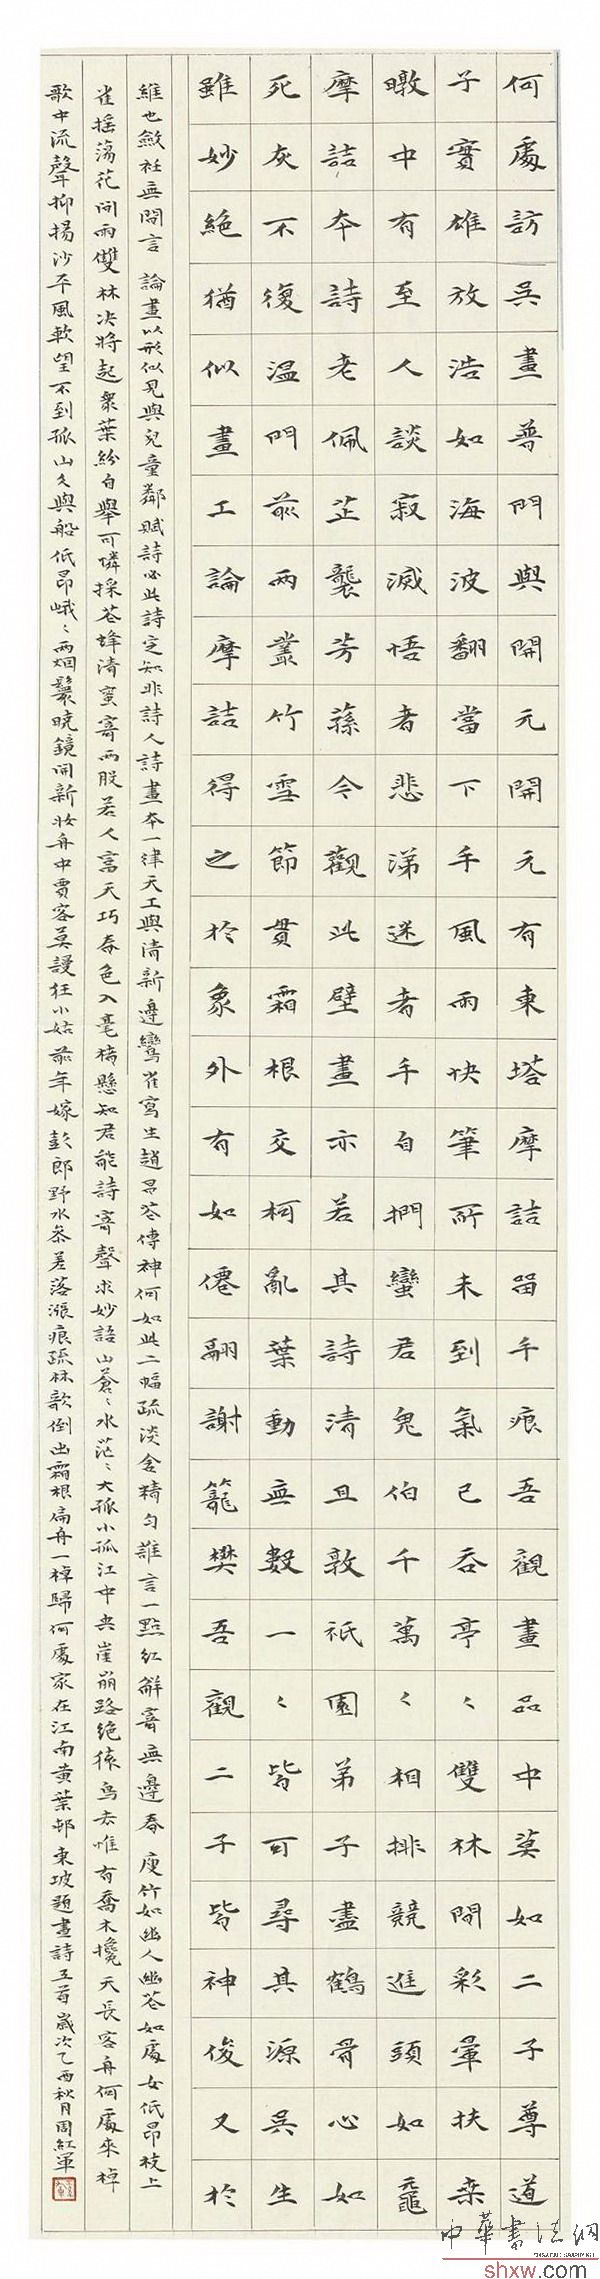 何處訪吳畫普門與開元開元有東塔摩詰留手痕吾觀畫品中莫如二子尊道
子實雄放浩如海波翻當下手風雨快筆所未到氣已吞亭〻雙林間彩暈扶桑
暾中有至人談寂滅悟者悲涕迷者手自捫蠻君鬼伯千萬〻相排競進頭如黿
摩詰本詩老佩芷襲芳蓀今觀此壁畫亦若其詩清且敦祇園弟子盡鶴骨心如
死灰不復温門前兩叢竹雪節貫霜根交柯亂葉動無數一〻皆可尋其源吳生
雖妙絕猶似畫工論摩詰得之於象外有如僊翮謝籠樊吾觀二子皆神俊又於
維也斂衽無間言 論畫以形似見與兒童鄰賦詩必此詩定知非詩人詩畫本一律天工與清新邊鸞雀寫生趙昌花傳神何如此二幅疏淡含精勻誰言一點紅解寄無邊春 瘦竹如幽人幽花如處女低昂枝上
雀搖蕩花間雨雙林决將起衆葉紛自舉可憐採花蜂清蜜寄兩股若人富天巧春色入毫楮懸知君能詩寄聲求妙語山蒼〻水茫〻大孤小孤江中央崖崩路絕猿鳥去惟有喬木攙天長客舟何處來棹
歌中流聲抑揚沙平風軟望不到孤山久與船低昂峨〻兩烟鬟曉鏡開新妝舟中賈客莫謾狂小姑前年嫁彭郎野水參差落漲痕疏林欹倒出霜根扁舟一棹歸何處家在江南黃葉邨 東坡題畫詩五首歲次乙酉秋月周紅軍
中華書法網
shxw.com